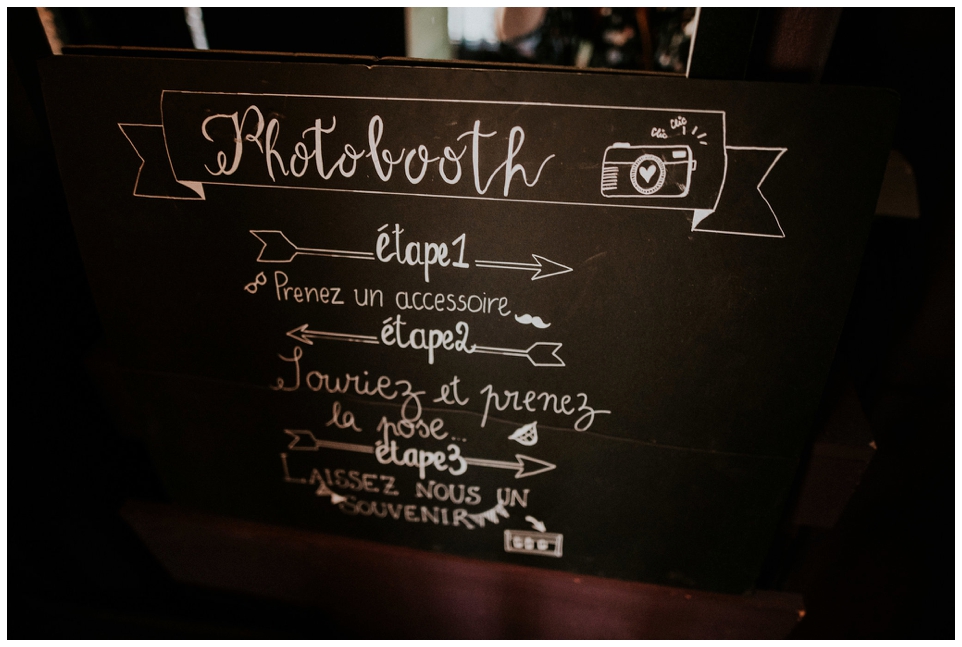 Photobooth
Clic Clic
étape1
Prenez un accessoire
étape2
Souriez et prenez
la pose...
étape3
LAISSEZ NOUS UN
SOUVENIR